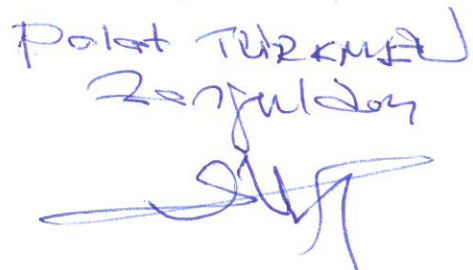 Polat TÜRKMEN
Zonguldak